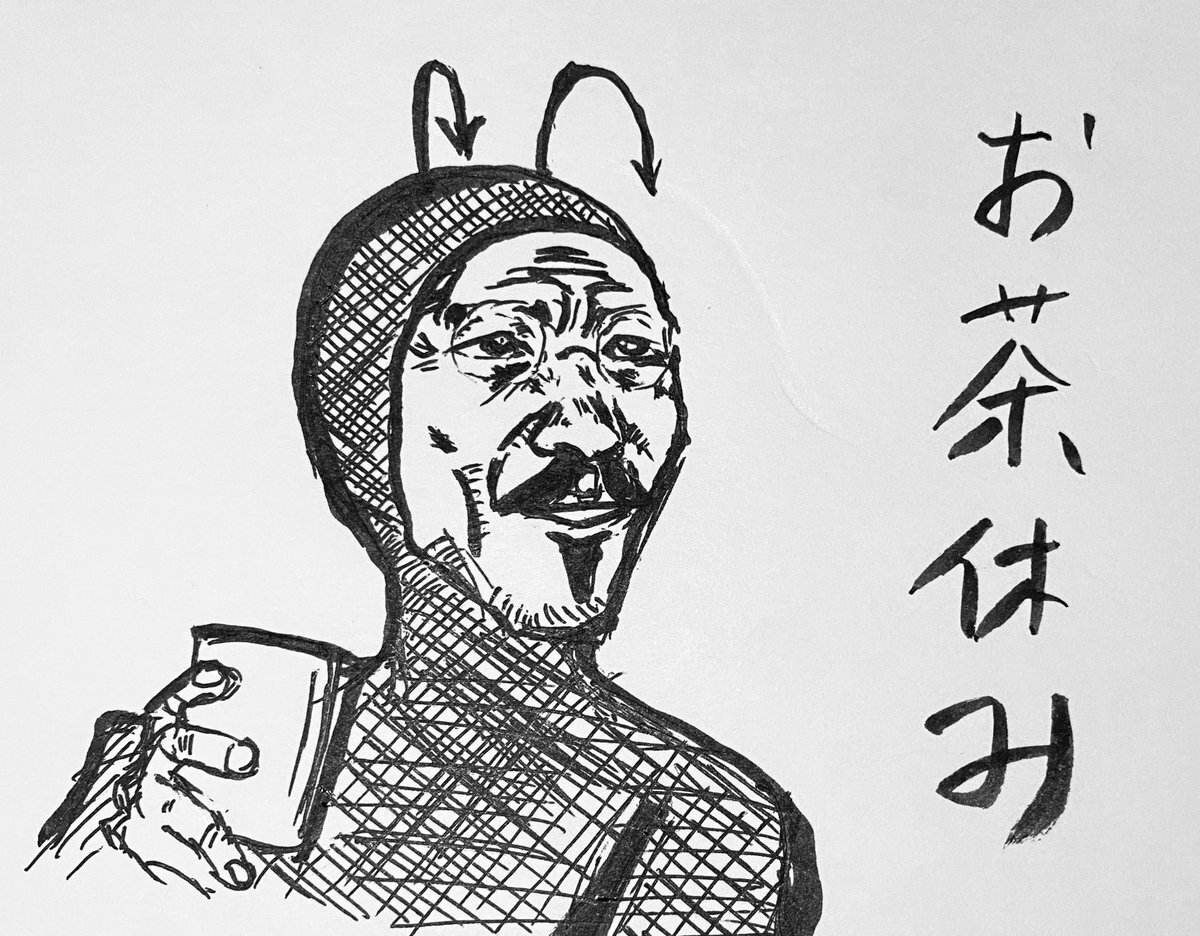 お茶休み